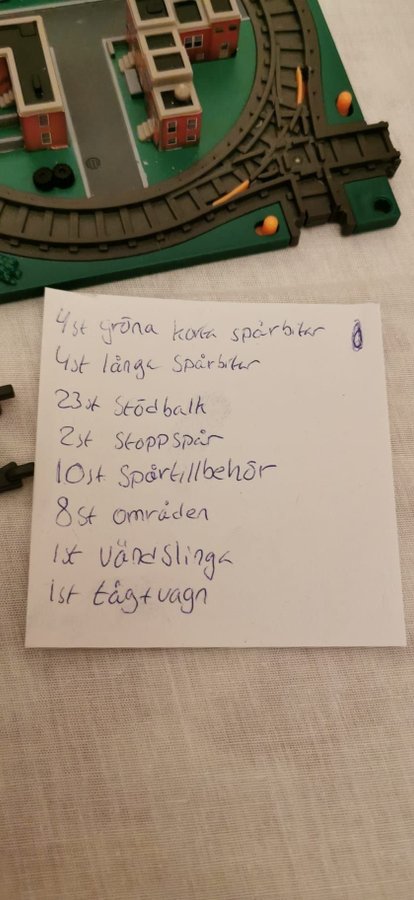 4st gröna korta spårbitar
4st långa spårbitar
23st stödbalk
2st stoppspår
10st spårtillbehör
8st områden
1st vändslinga
1st tåg+vagn